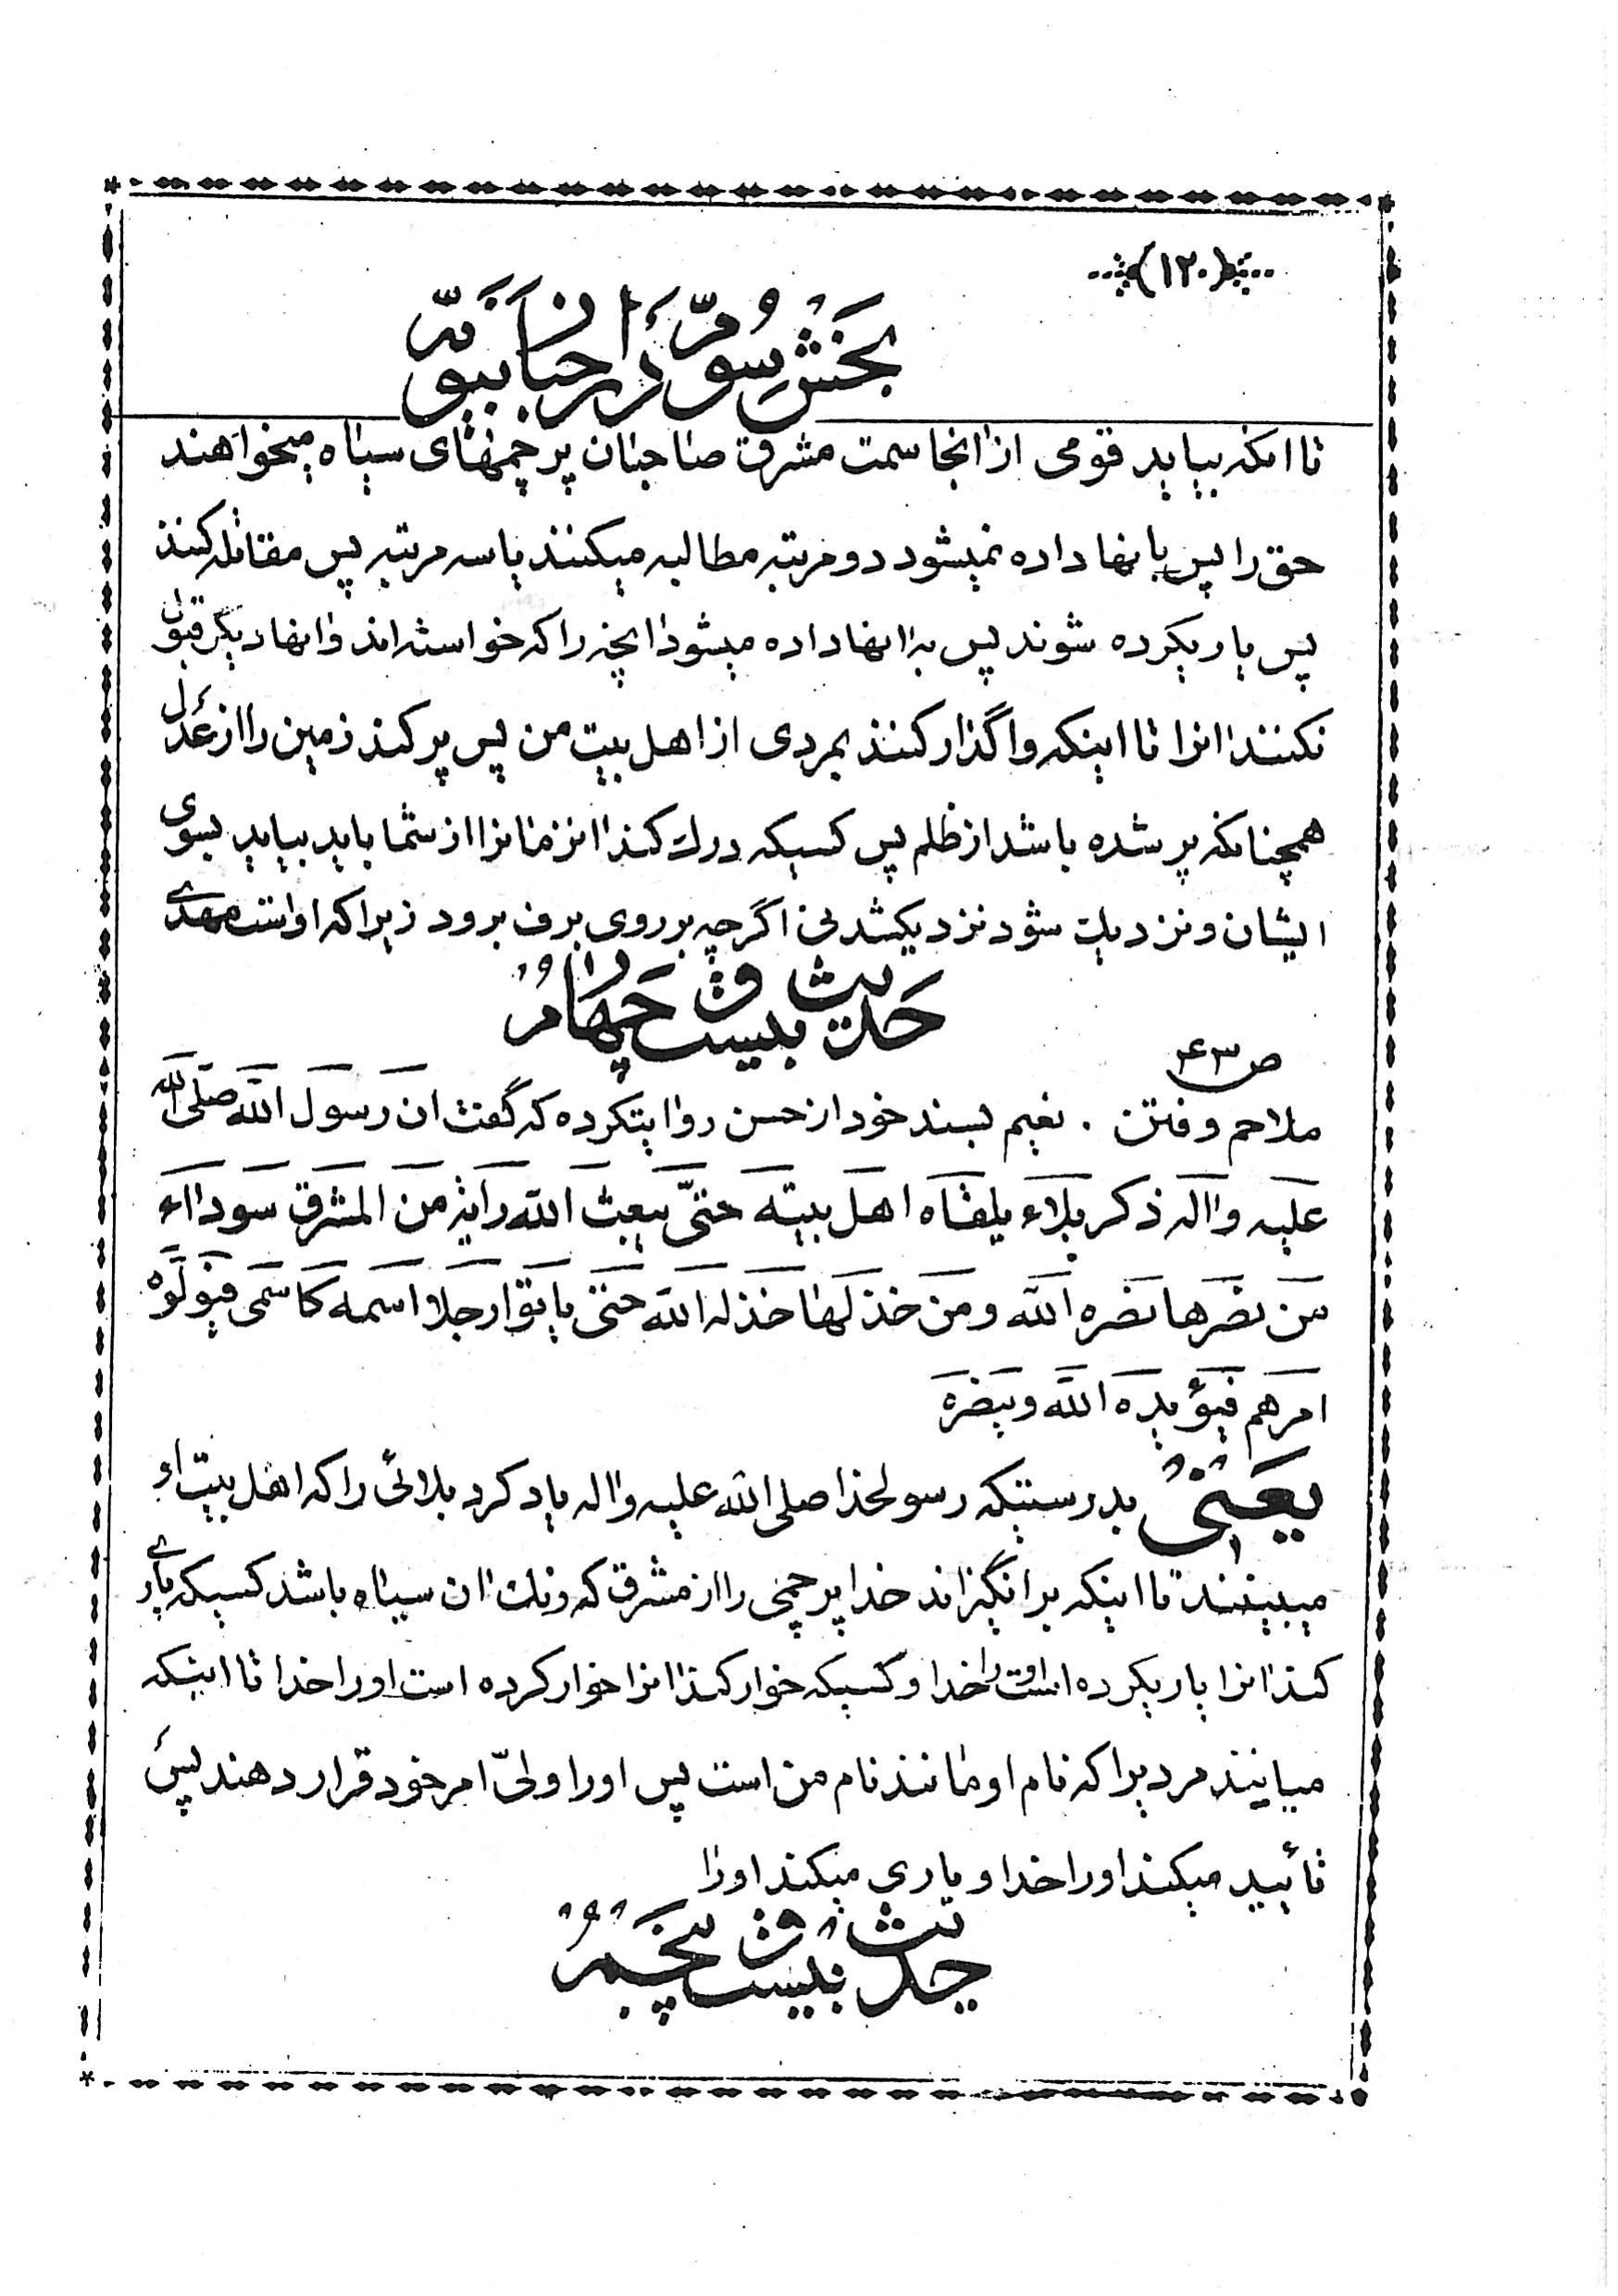 (۱۲۰)
بخش سوم در اخبار نبویّه
تا انکه بیاید قومی از انجا سمت مشرق صاحبان پرچمهای سیاه میخواهند
حق را پس بانها داده نمیشود دو مرتبه مطالبه میکنند یا سه مرتبه پس مقاتله کنند
پس یاریکرده شوند پس به انها داده میشود انچه را که خواسته اند و انها دیگر قبول
نکنند انرا تا اینکه واگذار کنند بمردی از اهل بیت من پس پر کند زمین را از عدل
همچنانکه پر شده باشد از ظلم پس کسیکه درک کند انزمانرا از شما باید بیاید بسوی
ایشان و نزدیک شود نزدیکشدنی اگرچه بر روی برف برود زیرا که اواست مهدی
حدیث بیست و چهارم
ص ۴۳
ملاحم و فتن . نعیم بسند خود از حسن روایتکرده که گفت ان رسول الله صلّی الله
علیه و اله ذکر بلاء یلقاه اهل بیته حتّی یبعث الله رایة من المشرق سوداء
من نصرها نصره الله و من خذلها خذله الله حتی یاتوا رجلا اسمه کاسمی فیولّوه
امرهم فیؤیده الله و ینصره
یعنی بدرستیکه رسولخدا صلی الله علیه و اله یاد کرد بلائی را که اهل بیت او
میبینند تا اینکه برانگیزاند خدا پرچمی را از مشرق که رنک ان سیاه باشد کسیکه یاری
کند انرا یاریکرده است او را خدا و کسیکه خوار کند انرا خوار کرده است او را خدا تا اینکه
میایند مردیرا که نام او مانند نام من است پس او را ولیّ امر خود قرار دهند پس
تائید میکند او را خدا و یاری میکند او را
حدیث بیست و پنجم